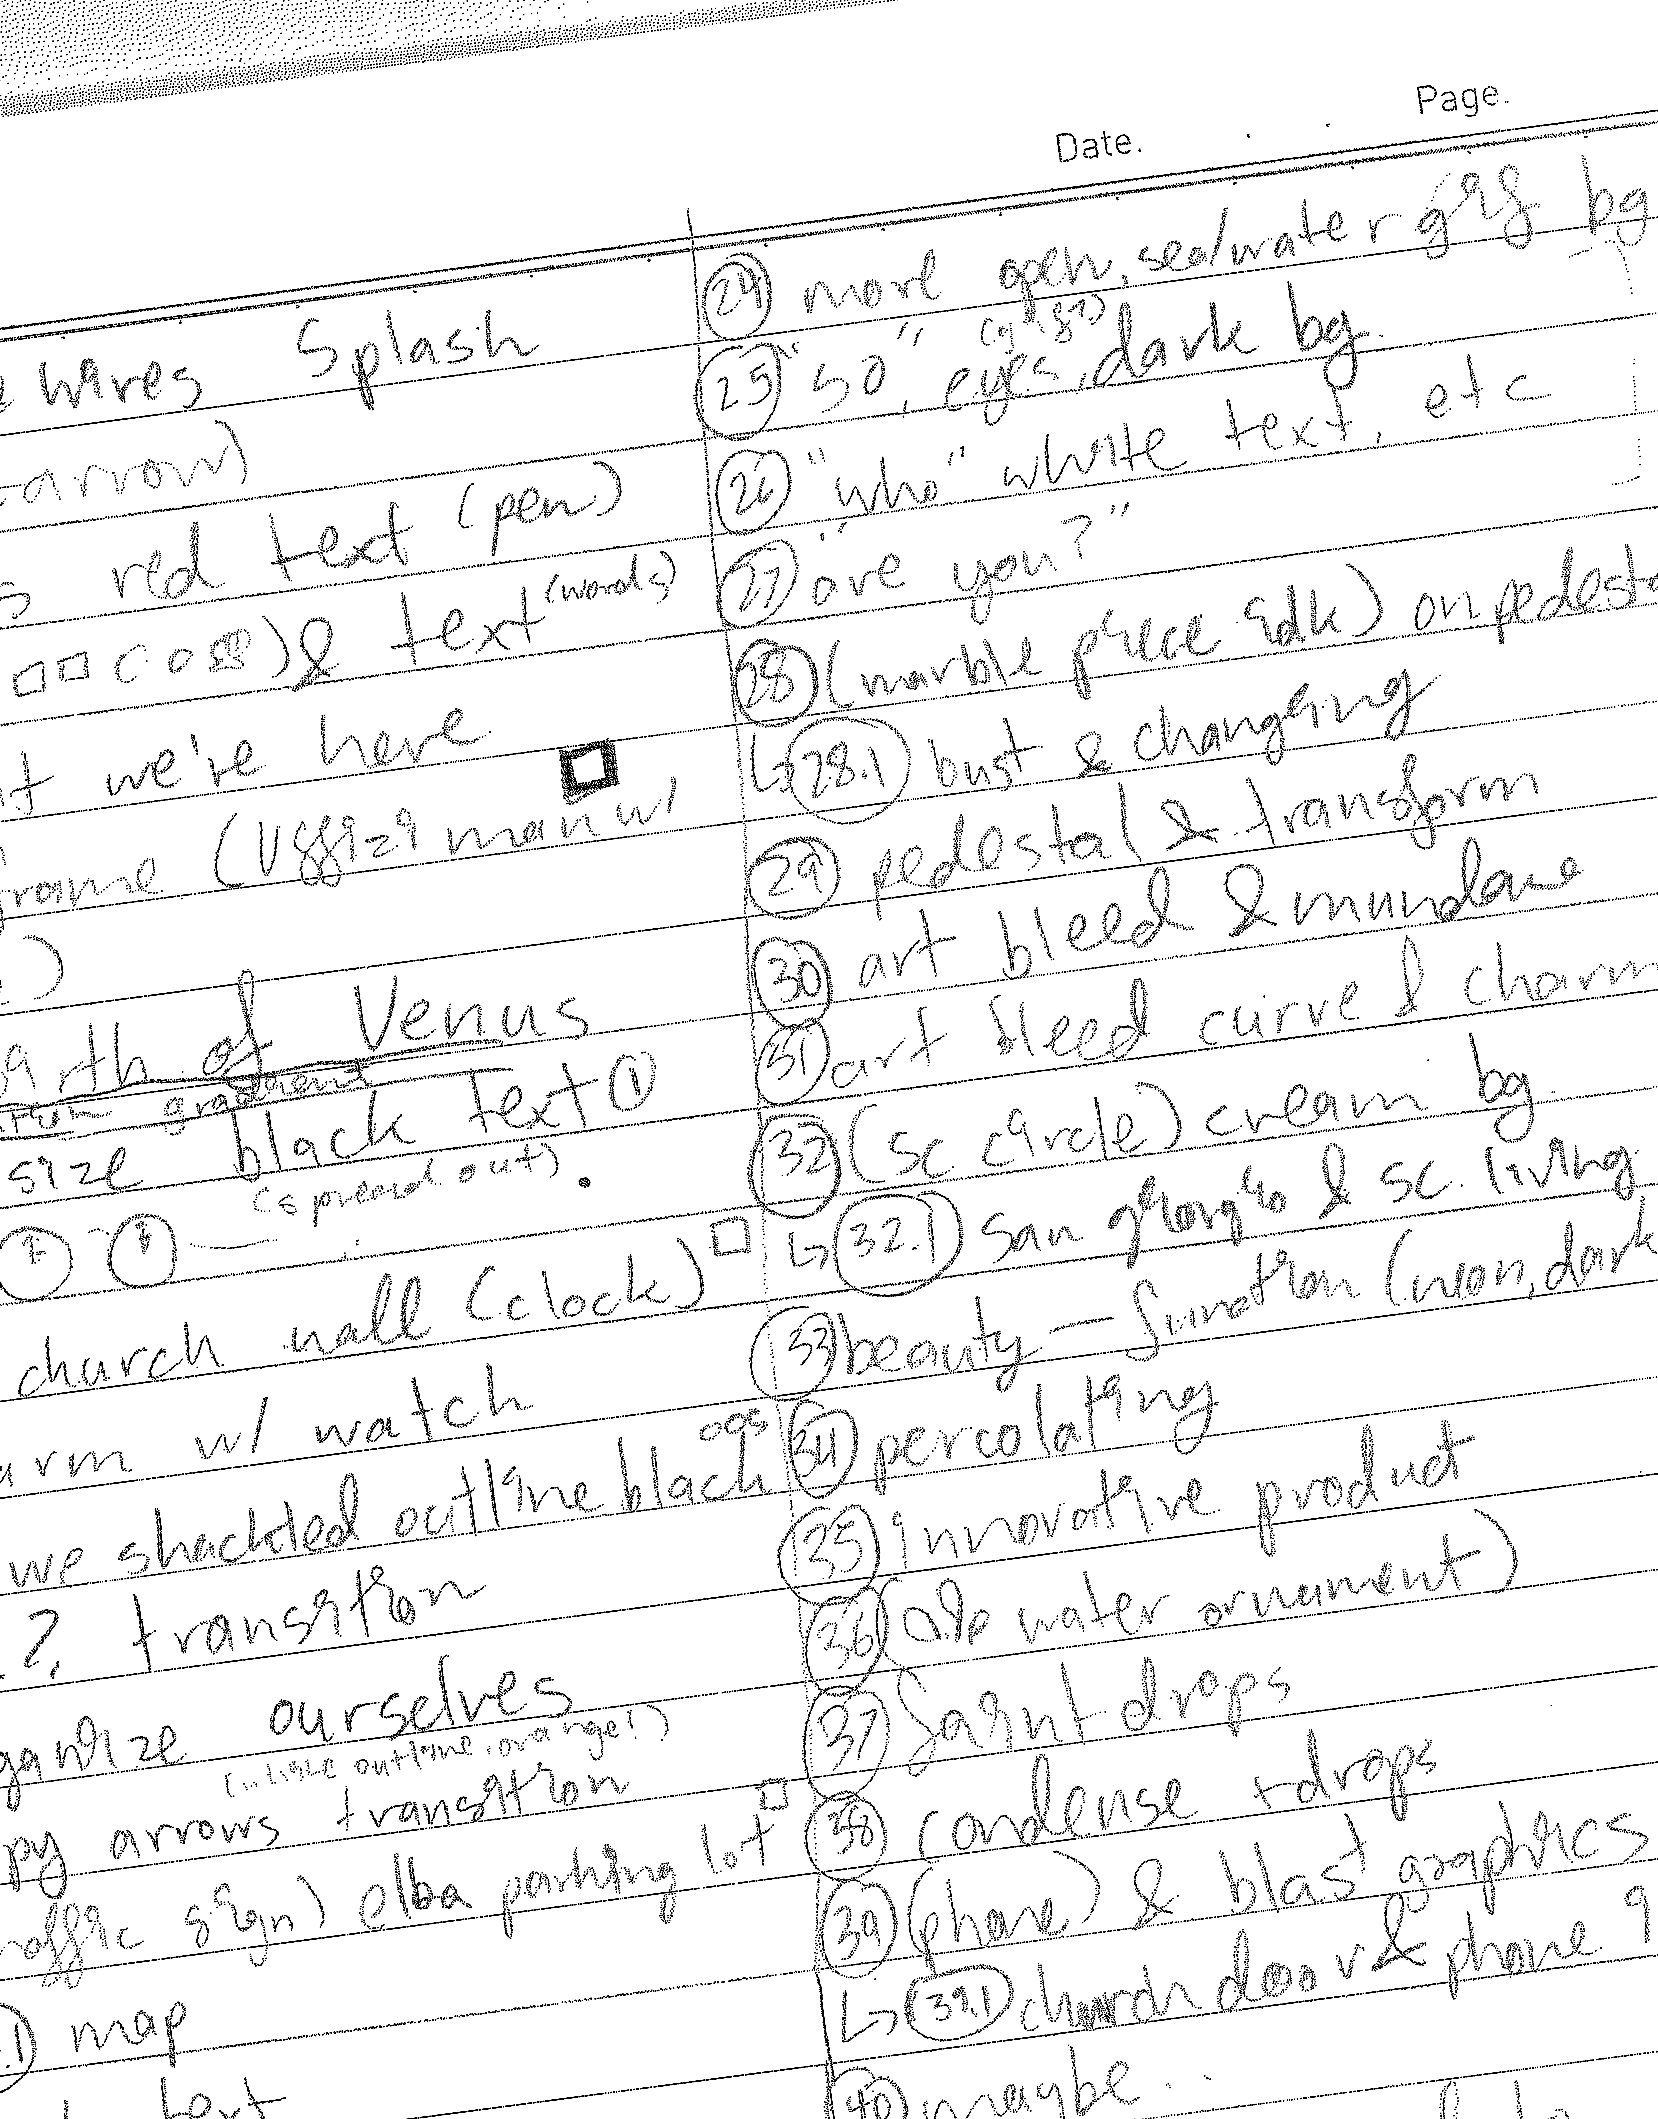 Page.
Date.
wires Splash
arrow)
red text (pen)
& text (words)
we're here
(Uffizi man w/
)
of Venus
gradient
size black text ①
(spread out).
church wall (clock)
arm w/ watch
we shackled outline black
? transition
ourselves
outline, orange!)
py arrows transition
sign) elba parking lot
.1) map
24 more open, sea/water gif bg
(gif?)
25 "so", eyes, dark bg.
26 "who" white text, etc
27 "are you?"
28 (marble piece idk) on
↳ 28.1 bust & changing
29 pedestal & transform
30 art bleed & mundane
31 art bleed curve & charm
32 (sc circle) cream bg.
↳ 32.1 San giorgio & sc. living
33 beauty — function (neon, dark
34 percolating
35 innovative product
36 water ornament)
37 faint drops
38 condense + drops
39 (phone) & blast graphics
↳ 39.1 church door & phone
40 maybe..